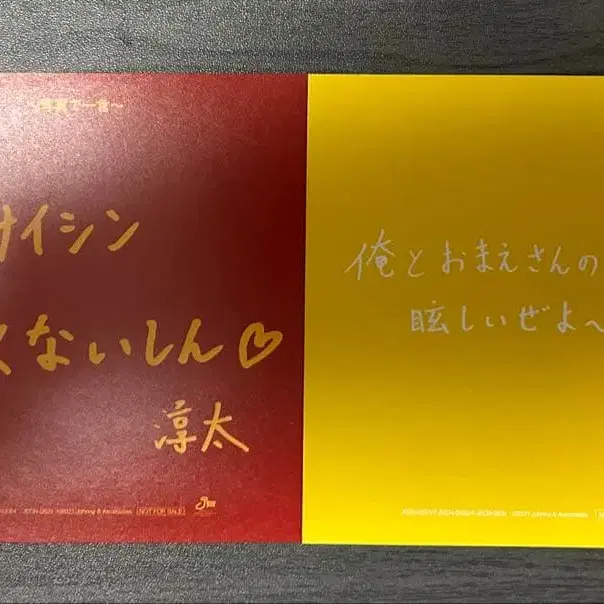 写真で一言〜
サイシン
くないしん♡
淳太
Johnny & Associates
NOT FOR SALE
俺とおまえさんの
眩しいぜよ〜
Johnny & Associates